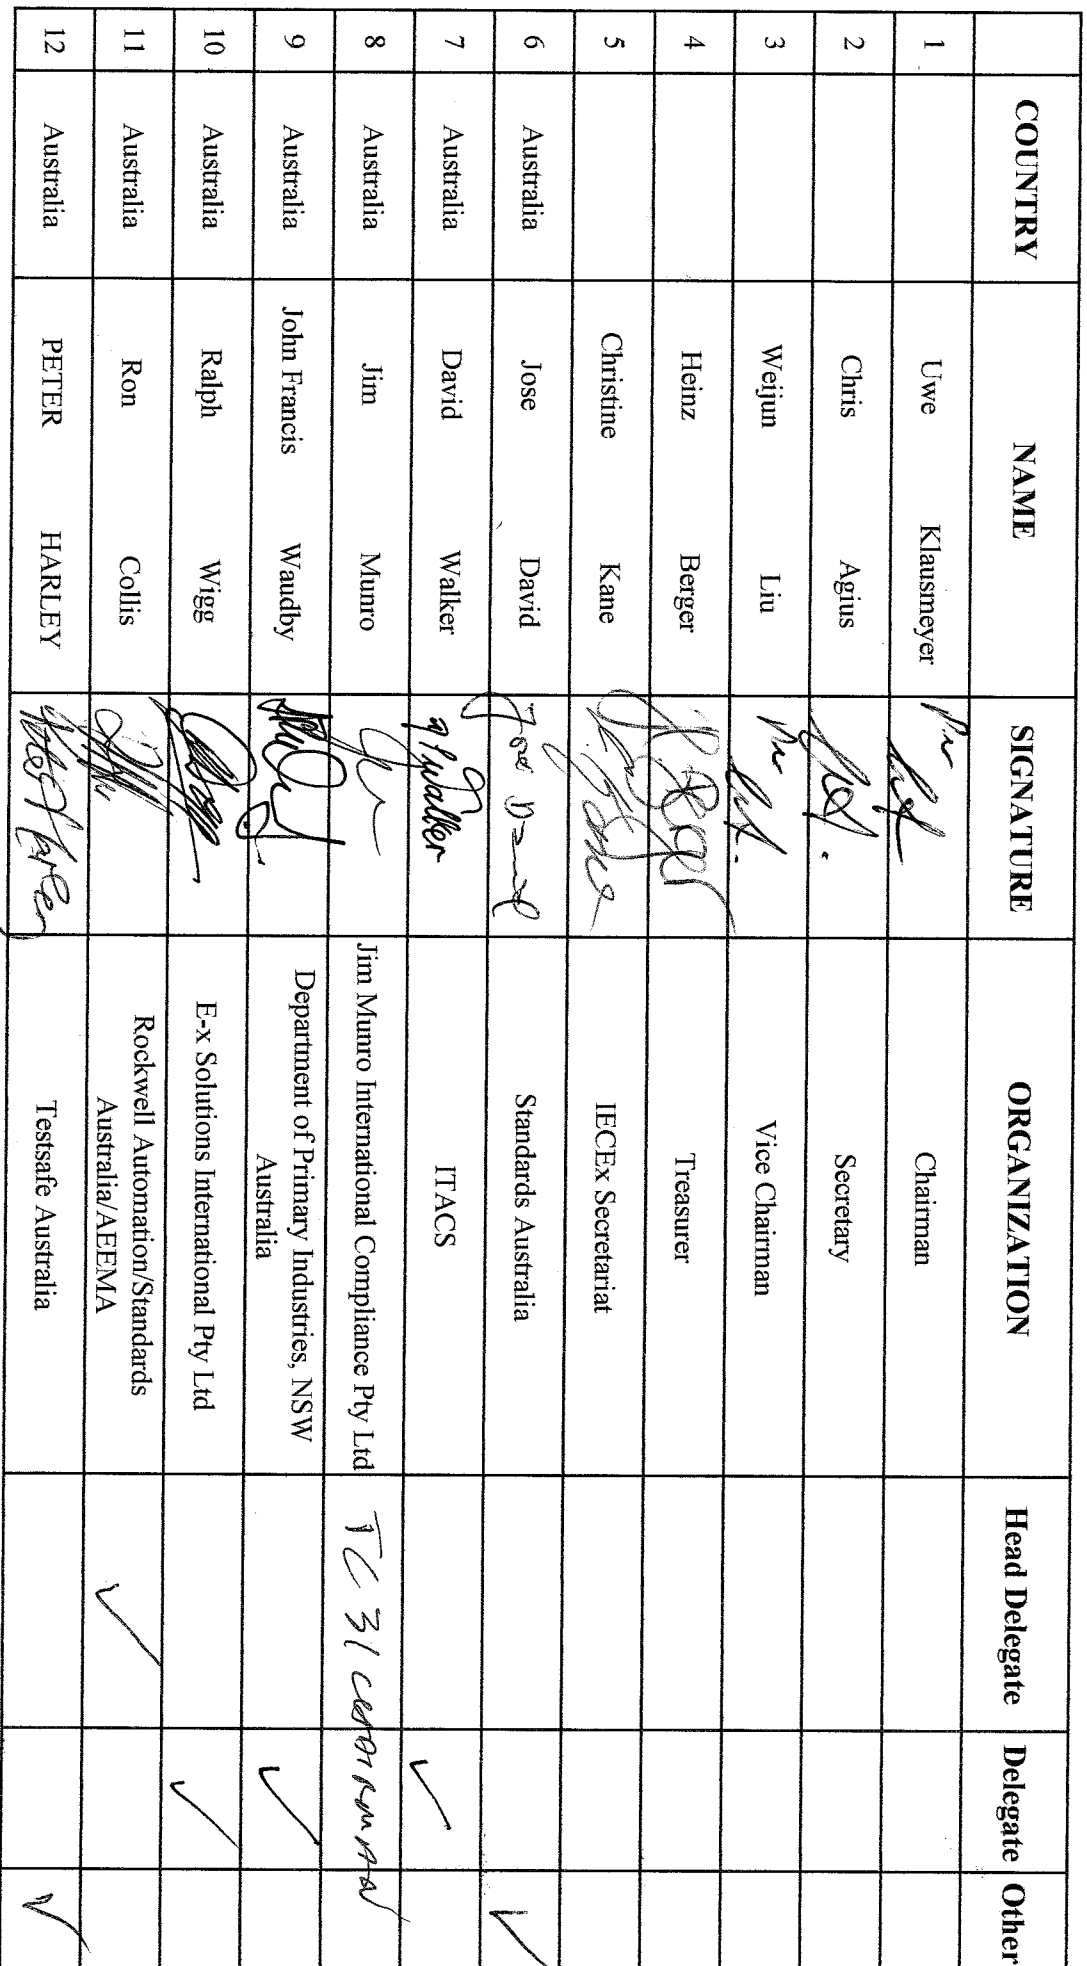 COUNTRY NAME SIGNATURE ORGANIZATION Head Delegate Delegate Other
1 Uwe Klausmeyer Chairman
2 Chris Agius Secretary
3 Weijun Liu Vice Chairman
4 Heinz Berger H Berger Treasurer
5 Christine Kane IECEx Secretariat
6 Australia Jose David Jose David Standards Australia ✓
7 Australia David Walker Walker ITACS ✓
8 Australia Jim Munro Jim Munro International Compliance Pty Ltd TC 31 CHAIRMAN
9 Australia John Francis Waudby Department of Primary Industries, NSW
Australia ✓
10 Australia Ralph Wigg E-x Solutions International Pty Ltd ✓
11 Australia Ron Collis Rockwell Automation/Standards
Australia/AEEMA ✓
12 Australia PETER HARLEY Peter Harley Testsafe Australia ✓